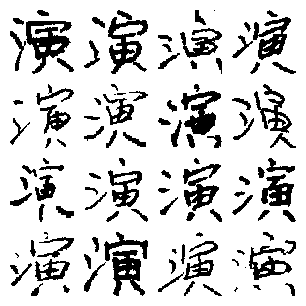 演演演演
演演演演
演演演演
演演演演